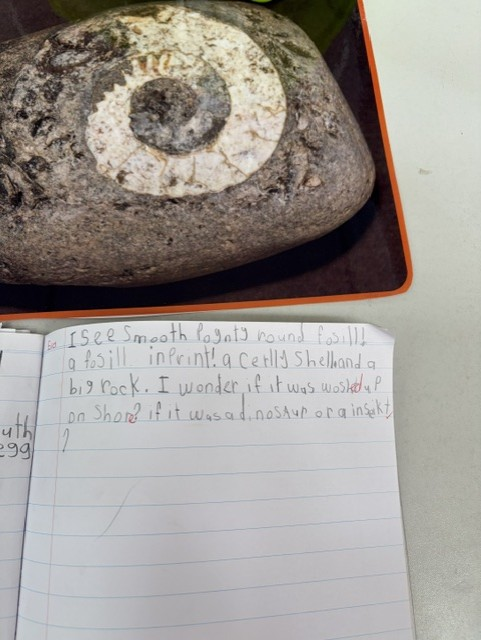 I see smooth poynty round fosill!
a fosill inprint! a cerlly shell and a
big rock. I wonder if it was woshed up
on shore? if it was a dinosaur or a insekt
?
uth
egg